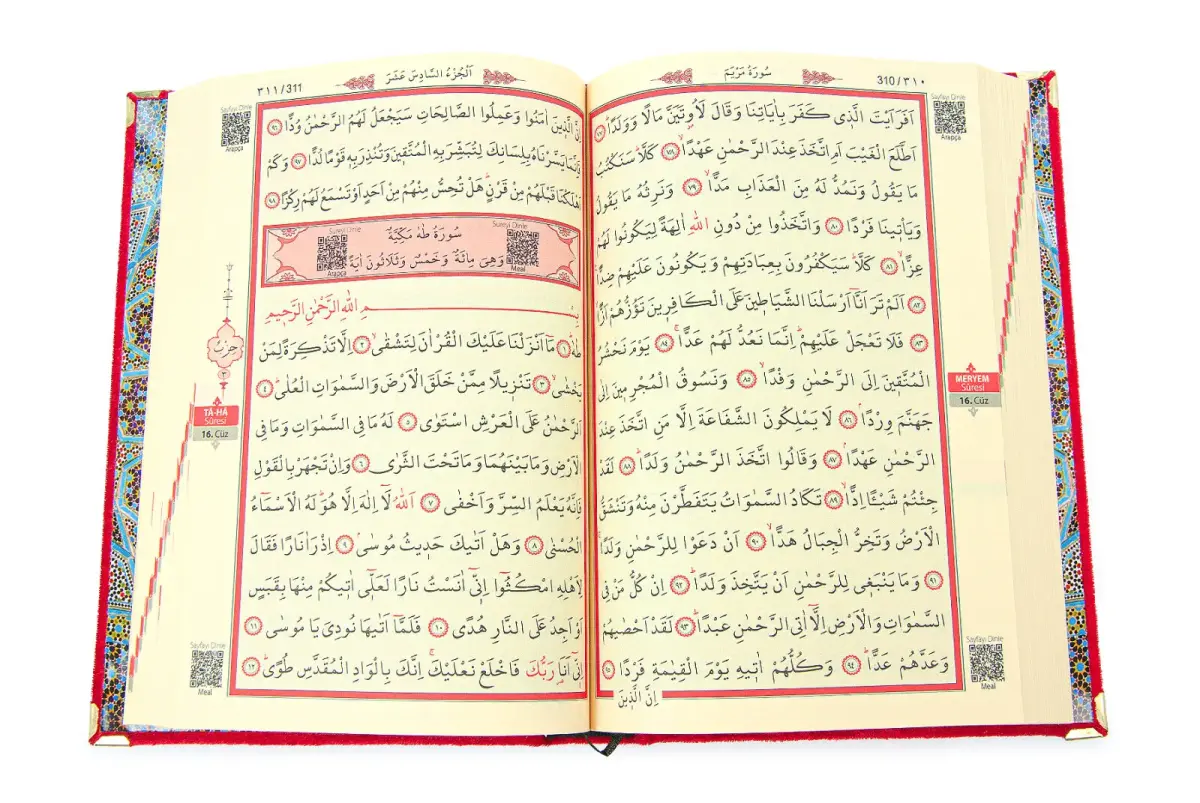 سُورَةُ مَرْيَمَ
310/٣١٠
Sayfayı Dinle
Arapça
اَفَرَاَيْتَ الَّذ۪ي كَفَرَ بِاٰيَاتِنَا وَقَالَ لَاُو۫تَيَنَّ مَالًا وَوَلَدًاۜ ﴿٧٧﴾
اَطَّلَعَ الْغَيْبَ اَمِ اتَّخَذَ عِنْدَ الرَّحْمٰنِ عَهْدًاۙ ﴿٧٨﴾ كَلَّاۜ سَنَكْتُبُ
مَا يَقُولُ وَنَمُدُّ لَهُ مِنَ الْعَذَابِ مَدًّاۙ ﴿٧٩﴾ وَنَرِثُهُ مَا يَقُولُ
وَيَأْت۪ينَا فَرْدًا ﴿٨٠﴾ وَاتَّخَذُوا مِنْ دُونِ اللّٰهِ اٰلِهَةً لِيَكُونُوا لَهُمْ
عِزًّاۙ ﴿٨١﴾ كَلَّاۜ سَيَكْفُرُونَ بِعِبَادَتِهِمْ وَيَكُونُونَ عَلَيْهِمْ ضِدًّا
﴿٨٢﴾ اَلَمْ تَرَ اَنَّٓا اَرْسَلْنَا الشَّيَاط۪ينَ عَلَى الْكَافِر۪ينَ تَؤُزُّهُمْ اَزًّاۙ
﴿٨٣﴾ فَلَا تَعْجَلْ عَلَيْهِمْۜ اِنَّمَا نَعُدُّ لَهُمْ عَدًّاۚ ﴿٨٤﴾ يَوْمَ نَحْشُرُ
الْمُتَّق۪ينَ اِلَى الرَّحْمٰنِ وَفْدًاۙ ﴿٨٥﴾ وَنَسُوقُ الْمُجْرِم۪ينَ اِلٰى
جَهَنَّمَ وِرْدًاۢ ﴿٨٦﴾ لَا يَمْلِكُونَ الشَّفَاعَةَ اِلَّا مَنِ اتَّخَذَ عِنْدَ
الرَّحْمٰنِ عَهْدًاۢ ﴿٨٧﴾ وَقَالُوا اتَّخَذَ الرَّحْمٰنُ وَلَدًاۜ ﴿٨٨﴾ لَقَدْ
جِئْتُمْ شَيْـًٔا اِدًّاۙ ﴿٨٩﴾ تَكَادُ السَّمٰوَاتُ يَتَفَطَّرْنَ مِنْهُ وَتَنْشَقُّ
الْاَرْضُ وَتَخِرُّ الْجِبَالُ هَدًّاۙ ﴿٩٠﴾ اَنْ دَعَوْا لِلرَّحْمٰنِ وَلَدًاۚ
﴿٩١﴾ وَمَا يَنْبَغ۪ي لِلرَّحْمٰنِ اَنْ يَتَّخِذَ وَلَدًاۜ ﴿٩٢﴾ اِنْ كُلُّ مَنْ فِي
السَّمٰوَاتِ وَالْاَرْضِ اِلَّٓا اٰتِي الرَّحْمٰنِ عَبْدًاۜ ﴿٩٣﴾ لَقَدْ اَحْصٰيهُمْ
وَعَدَّهُمْ عَدًّاۜ ﴿٩٤﴾ وَكُلُّهُمْ اٰت۪يهِ يَوْمَ الْقِيٰمَةِ فَرْدًا ﴿٩٥﴾
اِنَّ الَّذ۪ينَ
MERYEM
Sûresi
16. Cüz
Sayfayı Dinle
Meal
اَلْجُزْءُ السَّادِسَ عَشَرَ
٣١١/311
Sayfayı Dinle
Arapça
اِنَّ الَّذ۪ينَ اٰمَنُوا وَعَمِلُوا الصَّالِحَاتِ سَيَجْعَلُ لَهُمُ الرَّحْمٰنُ وُدًّا ﴿٩٦﴾
فَاِنَّمَا يَسَّرْنَاهُ بِلِسَانِكَ لِتُبَشِّرَ بِهِ الْمُتَّق۪ينَ وَتُنْذِرَ بِه۪ قَوْمًا لُدًّا ﴿٩٧﴾ وَكَمْ
اَهْلَكْنَا قَبْلَهُمْ مِنْ قَرْنٍۜ هَلْ تُحِسُّ مِنْهُمْ مِنْ اَحَدٍ اَوْ تَسْمَعُ لَهُمْ رِكْزًا ﴿٩٨﴾
سُورَةُ طٰهٰ مَكِّيَّةٌ
وَهِيَ مِائَةٌ وَخَمْسٌ وَثَلَاثُونَ اٰيَةً
Sureyi Dinle
Meal
Sureyi Dinle
Arapça
بِسْمِ اللّٰهِ الرَّحْمٰنِ الرَّح۪يمِ
طٰهٰۜ ﴿١﴾ مَٓا اَنْزَلْنَا عَلَيْكَ الْقُرْاٰنَ لِتَشْقٰىۙ ﴿٢﴾ اِلَّا تَذْكِرَةً لِمَنْ
يَخْشٰىۙ ﴿٣﴾ تَنْز۪يلًا مِمَّنْ خَلَقَ الْاَرْضَ وَالسَّمٰوَاتِ الْعُلٰىۜ ﴿٤﴾
اَلرَّحْمٰنُ عَلَى الْعَرْشِ اسْتَوٰى ﴿٥﴾ لَهُ مَا فِي السَّمٰوَاتِ وَمَا فِي
الْاَرْضِ وَمَا بَيْنَهُمَا وَمَا تَحْتَ الثَّرٰى ﴿٦﴾ وَاِنْ تَجْهَرْ بِالْقَوْلِ
فَاِنَّهُ يَعْلَمُ السِّرَّ وَاَخْفٰى ﴿٧﴾ اَللّٰهُ لَٓا اِلٰهَ اِلَّا هُوَۜ لَهُ الْاَسْمَٓاءُ
الْحُسْنٰى ﴿٨﴾ وَهَلْ اَتٰيكَ حَد۪يثُ مُوسٰىۢ ﴿٩﴾ اِذْ رَاٰ نَارًا فَقَالَ
لِاَهْلِهِ امْكُثُٓوا اِنّ۪ٓي اٰنَسْتُ نَارًا لَعَلّ۪ٓي اٰت۪يكُمْ مِنْهَا بِقَبَسٍ
اَوْ اَجِدُ عَلَى النَّارِ هُدًى ﴿١٠﴾ فَلَمَّٓا اَتٰيهَا نُودِيَ يَا مُوسٰى ﴿١١﴾
اِنّ۪ٓي اَنَا۬ رَبُّكَ فَاخْلَعْ نَعْلَيْكَۚ اِنَّكَ بِالْوَادِ الْمُقَدَّسِ طُوًىۜ ﴿١٢﴾
حِزْبٌ
٢
TÂ-HÂ
Sûresi
16. Cüz
Sayfayı Dinle
Meal